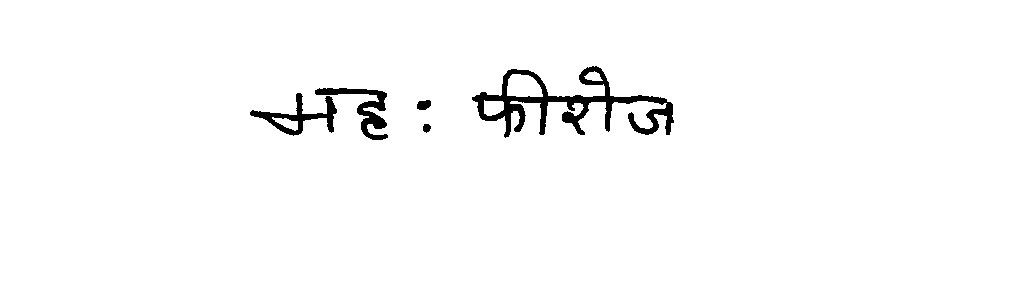 चाह : फीरोज